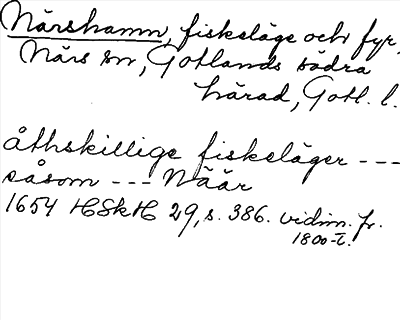 Närshamn, fiskeläge och fyr,
Närs sn, Gotlands södra
härad, Gotl. l.
åthskillige fiskeläger ---
såsom --- Näär
1654 HSkH 29, s. 386. vidim. fr.
1800-t.